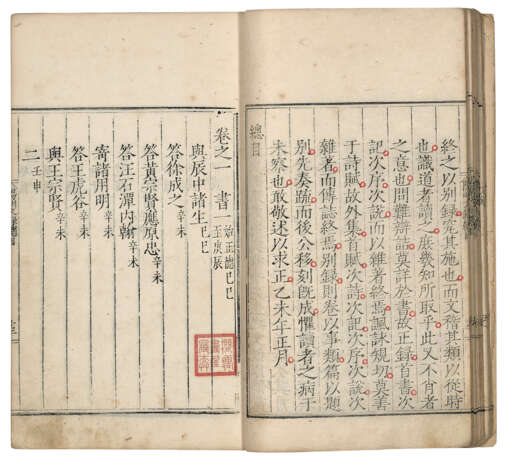 終之以別録究其施也而文稽其類以從時
也識道者讀之庶幾知所取乎此又不肖者
之意也問難辯詰莫詳於書故正録首書次
記次序次說而以雜著終焉諷詠規切莫善
於詩賦故外集首賦次詩次記次序次說次
雜著而傳誌終焉別録則卷以事類篇以題
別先奏疏而後公移刻既成懼讀者之病于
未察也敢敬述以求正乙未年正月
總目
卷之一 書一 始正德己巳至庚辰
與辰中諸生己巳
答徐成之辛未
答黃宗賢應原忠辛未
答汪石潭内翰辛未
寄諸用明辛未
答王虎谷辛未
與王宗賢辛未
二壬申